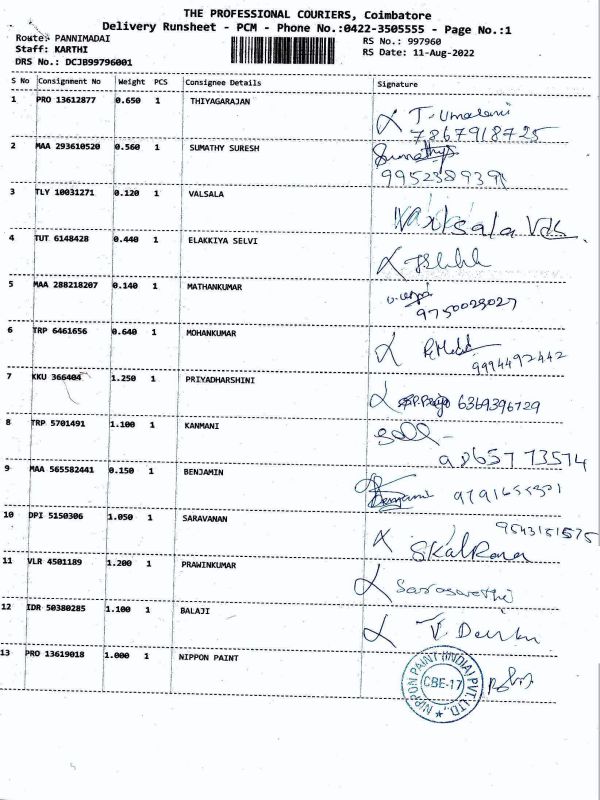 THE PROFESSIONAL COURIERS, Coimbatore
Delivery Runsheet - PCM - Phone No.:0422-3505555 - Page No.:1
Route: PANNIMADAI
RS No.: 997960
Staff: KARTHI
RS Date: 11-Aug-2022
DRS No.: DCJB99796001
S No Consignment No Weight PCS Consignee Details Signature
1 PRO 13612877 0.650 1 THIYAGARAJAN T. Umarani
7867918725
2 MAA 293610520 0.560 1 SUMATHY SURESH Sumathy
995238939
3 TLY 10031271 0.120 1 VALSALA
4 TUT 6148428 0.440 1 ELAKKIYA SELVI
5 MAA 288218207 0.140 1 MATHANKUMAR
9750029027
6 TRP 6461656 0.640 1 MOHANKUMAR
9994492442
7 KKU 366404 1.250 1 PRIYADHARSHINI 6369396729
8 TRP 5701491 1.100 1 KANMANI
9865773574
9 MAA 565582441 0.150 1 BENJAMIN Benjamin
10 DPI 5150306 1.050 1 SARAVANAN 9543151575
11 VLR 4501189 1.200 1 PRAWINKUMAR
12 IDR 50380285 1.100 1 BALAJI
13 PRO 13619018 1.000 1 NIPPON PAINT
NIPPON PAINT (INDIA) PVT. LTD.,
CBE-17